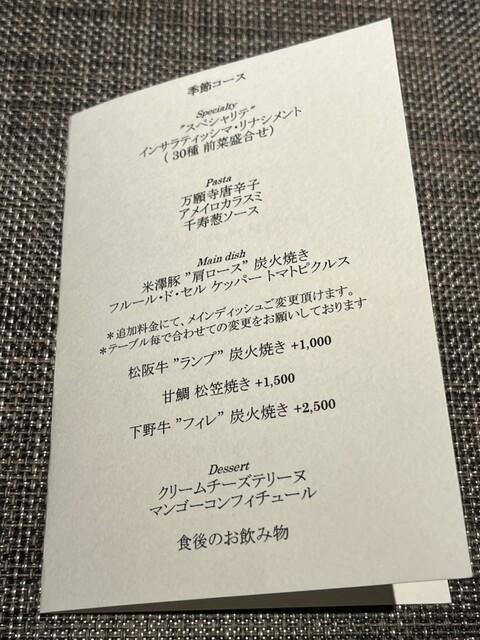 季節コース
Specialty
"スペシャリテ"
インサラティッシマ・リナシメント
( 30種 前菜盛合せ)
Pasta
万願寺唐辛子
アメイロカラスミ
千寿葱ソース
Main dish
米澤豚 "肩ロース" 炭火焼き
フルール・ド・セル ケッパー トマトピクルス
＊追加料金にて、メインディッシュご変更頂けます。
＊テーブル毎で合わせての変更をお願いしております
松阪牛 "ランプ" 炭火焼き +1,000
甘鯛 松笠焼き +1,500
下野牛 "フィレ" 炭火焼き +2,500
Dessert
クリームチーズテリーヌ
マンゴーコンフィチュール
食後のお飲み物